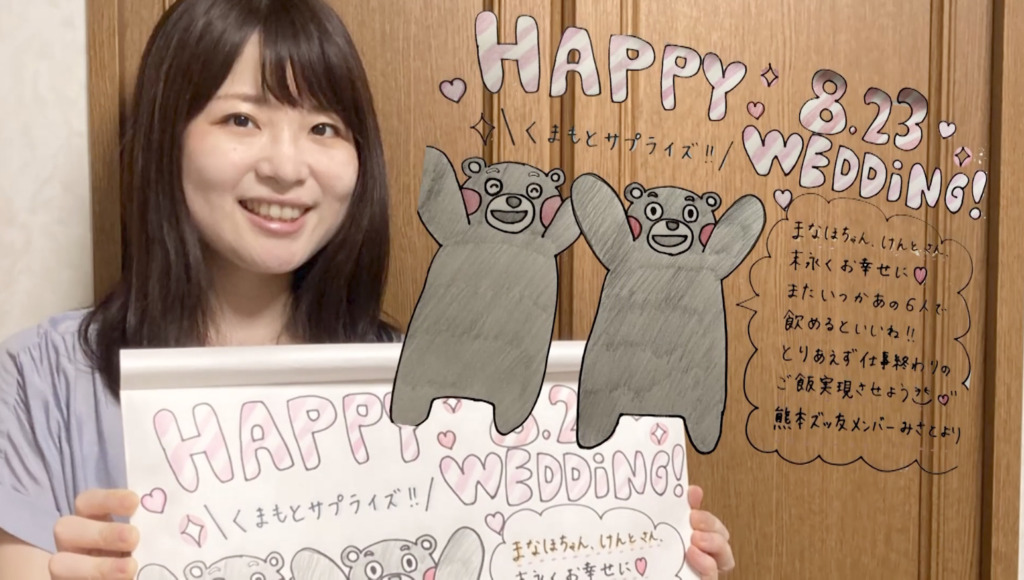 HAPPY
8.23
WEDDiNG!
くまもとサプライズ!!
まなほちゃん、けんとさん、
末永くお幸せに
またいつかあの6人で
飲めるといいね!!
とりあえず仕事終わりの
ご飯実現させよう
熊本ズッ友メンバーみさとより
HAPPY
8.2
WEDDiNG!
くまもとサプライズ!!
まなほちゃん、けんとさん、
末永くお幸せに